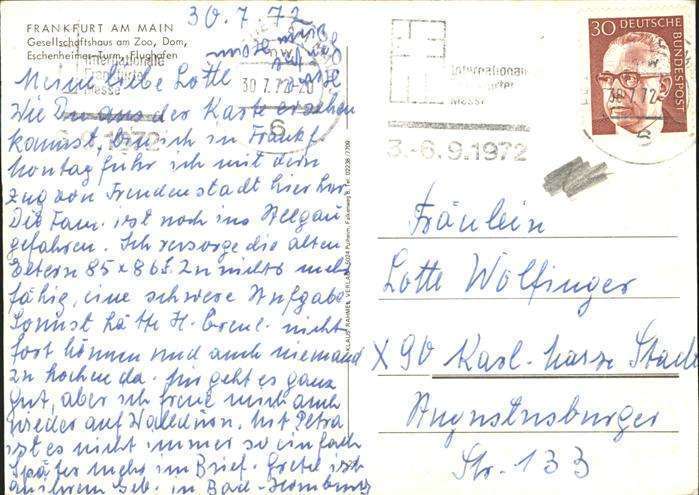 30.7.72
FRANKFURT AM MAIN
Gesellschaftshaus am Zoo, Dom,
Eschenheimer Turm, Flughafen
Meine liebe Lotte
Wie Du aus der Karte ersehen
kannst, bin ich in Frankf.
Montag fuhr ich mit dem
Zug von Freudenstadt hierher
Die Fam. ist noch ins Allgäu
gefahren. Ich versorge die alten
Eltern 85 + 86 J. Zu nichts mehr
fähig, eine schwere Aufgabe
Sonst hätte H. nicht
fort können und auch niemand
zu kochen da. Mir geht es ganz
gut, aber ich freue mich auch
wieder auf Walldürn. Mit Petra
ist es nicht immer so einfach
Später mehr im Brief. Grete ist
in Bad-Homburg
Internationale
Frankfurter
Messe
3.-6.9.1972
30.7.72-20
6
KLAUS RAHMEL VERLAG, 5024 Pulheim, Falkenweg 8, Tel. 02238/7709
Internationale
Frankfurter
Messe
3.-6.9.1972
30 DEUTSCHE
BUNDESPOST
30.7.72
6
Fräulein
Lotte Wolfinger
X 90 Karl-Marx Stadt
Augustusburger
Str. 133